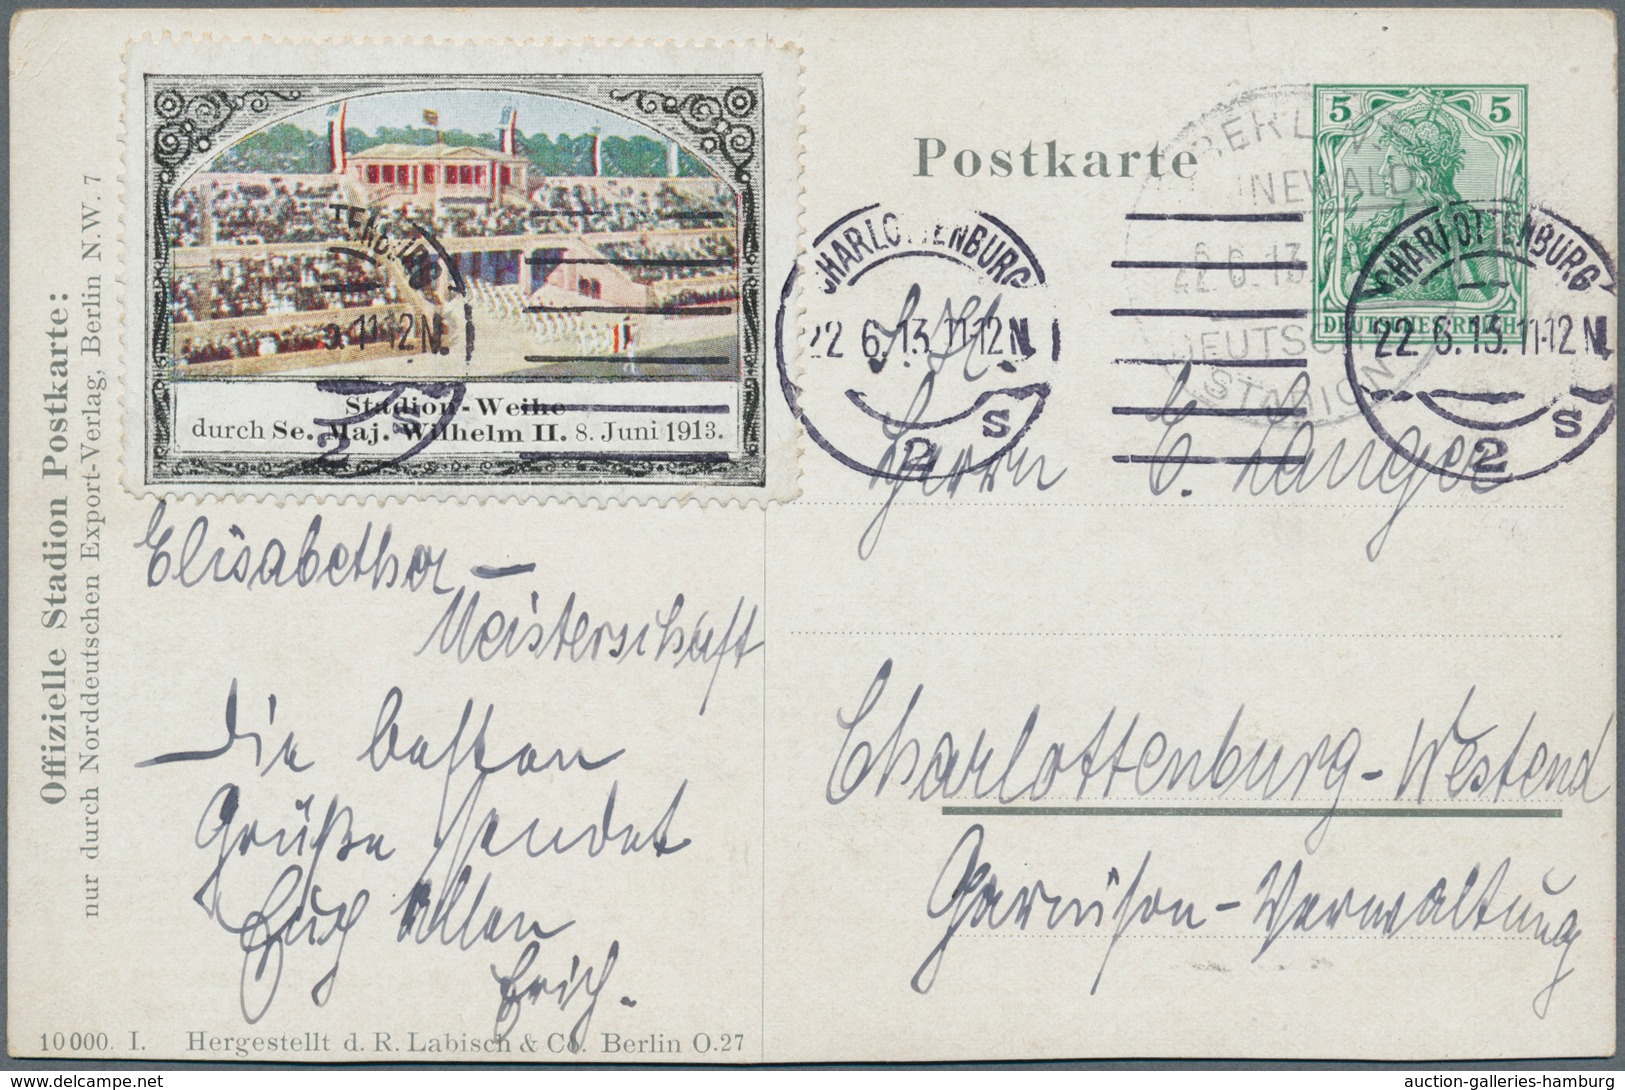 Offizielle Stadion Postkarte:
nur durch Norddeutschen Export-Verlag, Berlin N.W. 7
Stadion-Weihe
durch Se. Maj. Wilhelm II. 8. Juni 1913.
Postkarte
5 5
DEUTSCHES REICH
BERLIN
GRUNEWALD
22.6.13
DEUTSCHES
STADION
CHARLOTTENBURG
22.6.13.11-12N.
2 s
CHARLOTTENBURG
22.6.13.11-12N
2 s
TENBURG
3.11-12N.
2 s
Elisabether-
Meisterschaft
Die besten
Grüße sendet
Euch Allen
Erich.
Herrn C. Langer
Charlottenburg-Westend
Garnison-Verwaltung
10000. I. Hergestellt d. R. Labisch & Co. Berlin O.27
auction-galleries-hamburg